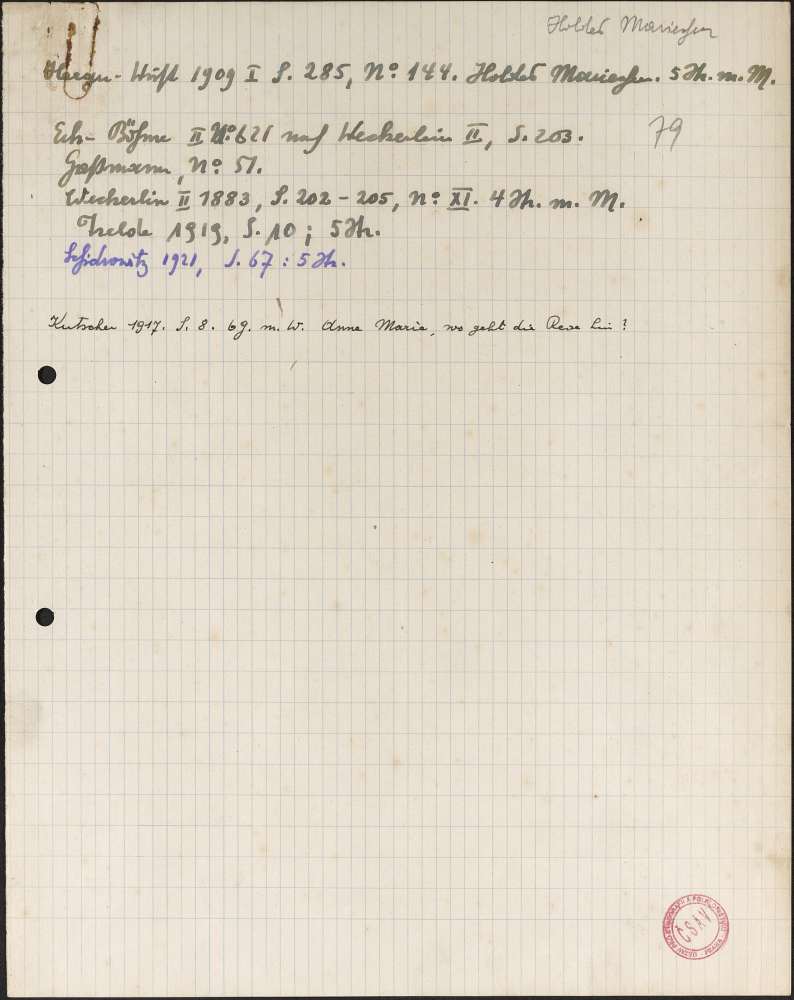 Holdes Mariechen
Heeger-Wüst 1909 I S. 285, No: 144. Holdes Mariechen. 5 Str. m. M.
79
Erk-Böhme II No: 621 nach Weckerlin II, S. 203.
Gaßmann, No: 51.
Weckerlin II 1883, S. 202-205, No: XI. 4 Str. m. M.
Thelde 1919, S. 10; 5 Str.
Schidrowitz 1921, S. 67: 5 Str.
Kutscher 1917. S. 8. 6 g. m. W. Anna Marie, wo geht die Reise hin?
ČSAV